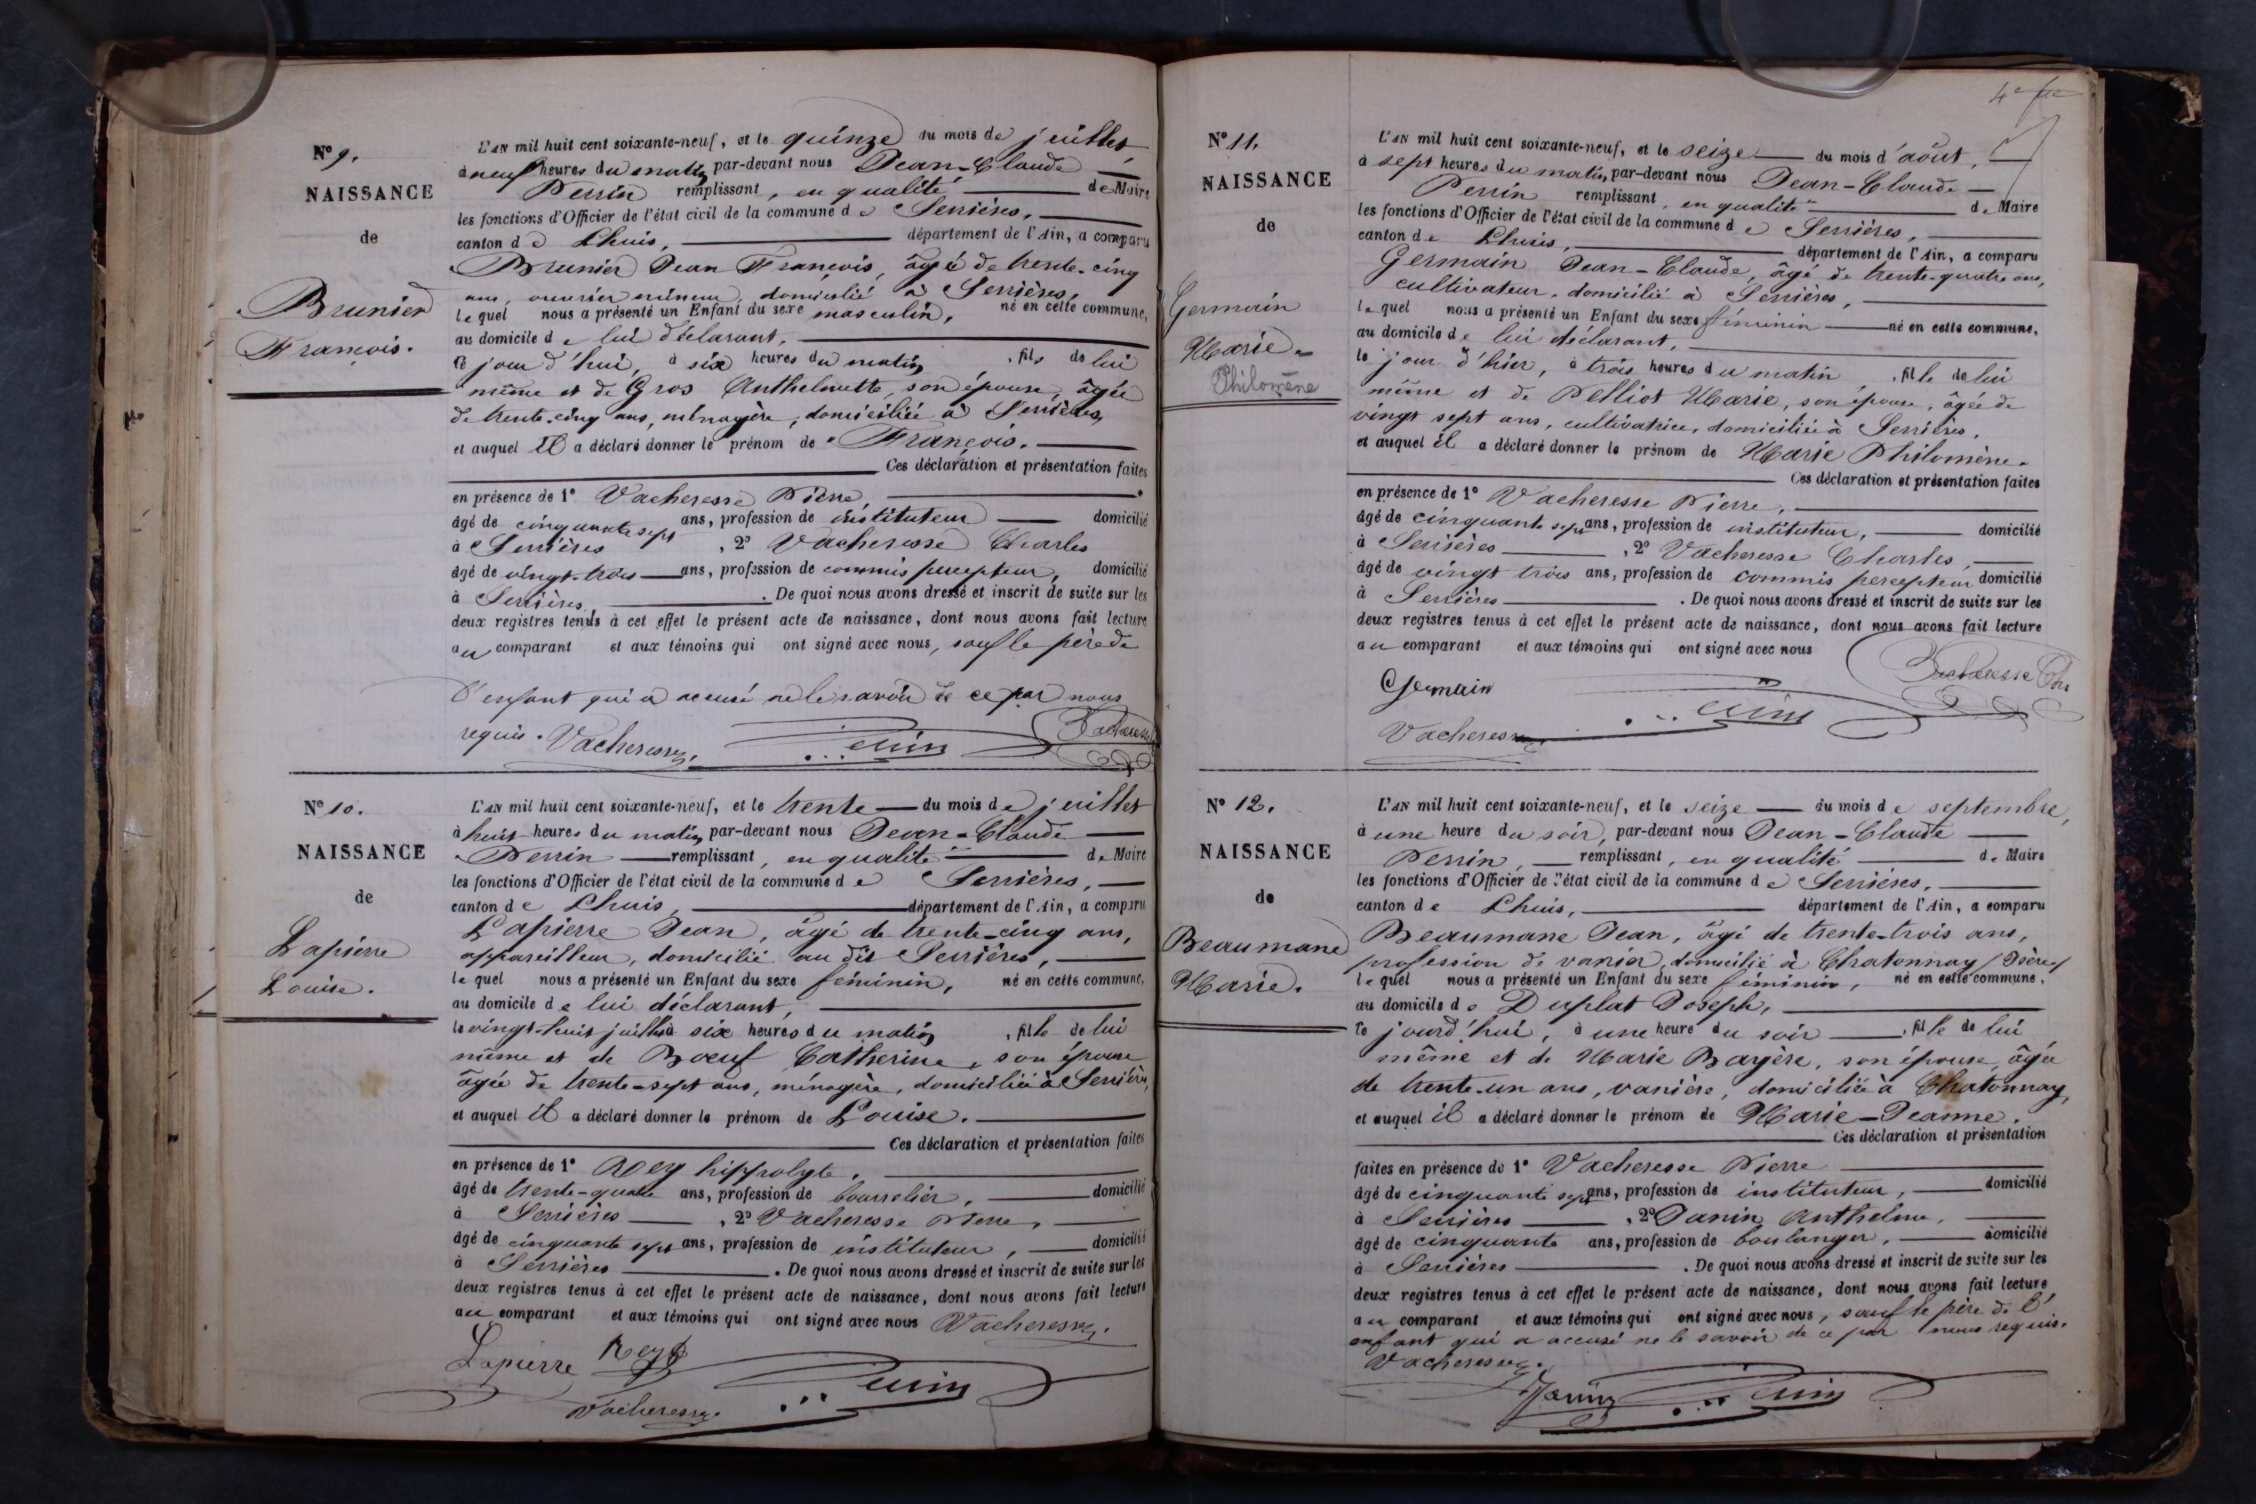 N° 9.
NAISSANCE
de
Brunier
François.
L'AN mil huit cent soixante-neuf, et le quinze du mois de juillet,
à neuf heures du matin, par-devant nous Jean-Claude
Perrin remplissant, en qualité de Maire
les fonctions d'Officier de l'état civil de la commune de Serrières,
canton de Lhuis, département de l'Ain, a comparu
Brunier Jean François, âgé de trente-cinq
ans, ouvrier mineur, domicilié à Serrières,
lequel nous a présenté un Enfant du sexe masculin, né en cette commune,
au domicile de lui déclarant,
ce jour d'hui, à six heures du matin, fils de lui
même et de Gros Anthelmette, son épouse, âgée
de trente-cinq ans, ménagère, domiciliée à Serrières,
et auquel il a déclaré donner le prénom de François.
Ces déclaration et présentation faites
en présence de 1° Vacheresse Pierre,
âgé de cinquante sept ans, profession de instituteur domicilié
à Serrières, 2° Vacheresse Charles
âgé de vingt-trois ans, profession de commis percepteur, domicilié
à Serrières. De quoi nous avons dressé et inscrit de suite sur les
deux registres tenus à cet effet le présent acte de naissance, dont nous avons fait lecture
au comparant et aux témoins qui ont signé avec nous, sauf le père de
l'enfant qui a accusé ne le savoir de ce par nous
requis. Vacheresse Perrin Vacheresse
N° 10.
NAISSANCE
de
Lapierre
Louise.
L'AN mil huit cent soixante-neuf, et le trente du mois de juillet
à huit heures du matin, par-devant nous Jean-Claude
Perrin remplissant, en qualité de Maire
les fonctions d'Officier de l'état civil de la commune de Serrières,
canton de Lhuis, département de l'Ain, a comparu
Lapierre Jean, âgé de trente-cinq ans,
appareilleur, domicilié au dit Serrières,
lequel nous a présenté un Enfant du sexe féminin, né en cette commune,
au domicile de lui déclarant,
le vingt-huit juillet à six heures du matin, fille de lui
même et de Bœuf Catherine, son épouse
âgée de trente-sept ans, ménagère, domiciliée à Serrières,
et auquel il a déclaré donner le prénom de Louise.
Ces déclaration et présentation faites
en présence de 1° Rey hippolyte,
âgé de trente-quatre ans, profession de bourrelier, domicilié
à Serrières, 2° Vacheresse Pierre,
âgé de cinquante sept ans, profession de instituteur, domicilié
à Serrières. De quoi nous avons dressé et inscrit de suite sur les
deux registres tenus à cet effet le présent acte de naissance, dont nous avons fait lecture
au comparant et aux témoins qui ont signé avec nous Vacheresse.
Lapierre Rey
Vacheresse Perrin
4e
N° 11.
NAISSANCE
de
Germain
Marie-
Philomène
L'AN mil huit cent soixante-neuf, et le seize du mois d'août,
à sept heures du matin, par-devant nous Jean-Claude
Perrin remplissant, en qualité de Maire
les fonctions d'Officier de l'état civil de la commune de Serrières,
canton de Lhuis, département de l'Ain, a comparu
Germain Jean-Claude, âgé de trente-quatre ans,
cultivateur, domicilié à Serrières,
lequel nous a présenté un Enfant du sexe féminin né en cette commune,
au domicile de lui déclarant,
le jour d'hier, à trois heures du matin, fille de lui
même et de Pelliot Marie, son épouse, âgée de
vingt sept ans, cultivatrice, domiciliée à Serrières.
et auquel il a déclaré donner le prénom de Marie Philomène.
Ces déclaration et présentation faites
en présence de 1° Vacheresse Pierre,
âgé de cinquante sept ans, profession de instituteur, domicilié
à Serrières, 2° Vacheresse Charles,
âgé de vingt trois ans, profession de commis percepteur domicilié
à Serrières. De quoi nous avons dressé et inscrit de suite sur les
deux registres tenus à cet effet le présent acte de naissance, dont nous avons fait lecture
au comparant et aux témoins qui ont signé avec nous
Germain Perrin Vacheresse Ch
Vacheresse
N° 12.
NAISSANCE
de
Beaumane
Marie.
L'AN mil huit cent soixante-neuf, et le seize du mois de septembre,
à une heure du soir, par-devant nous Jean-Claude
Perrin, remplissant, en qualité de Maire
les fonctions d'Officier de l'état civil de la commune de Serrières,
canton de Lhuis, département de l'Ain, a comparu
Beaumane Jean, âgé de trente-trois ans,
profession de vanier, domicilié à Chatonnay (Isère)
lequel nous a présenté un Enfant du sexe féminin, né en cette commune,
au domicile de Duplat Joseph,
ce jourd'hui, à une heure du soir, fille de lui
même et de Marie Bayère, son épouse, âgée
de trente-un ans, vanière, domiciliée à Chatonnay,
et auquel il a déclaré donner le prénom de Marie-Jeanne.
Ces déclaration et présentation
faites en présence de 1° Vacheresse Pierre
âgé de cinquante sept ans, profession de instituteur, domicilié
à Serrières, 2° Janin Anthelme,
âgé de cinquante ans, profession de boulanger, domicilié
à Serrières. De quoi nous avons dressé et inscrit de suite sur les
deux registres tenus à cet effet le présent acte de naissance, dont nous avons fait lecture
au comparant et aux témoins qui ont signé avec nous, sauf le père de l'
enfant qui a accusé ne le savoir de ce par nous requis.
Vacheresse.
Janin Perrin